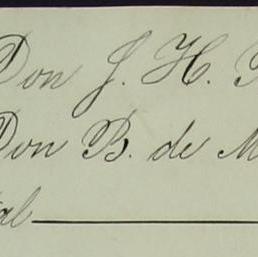 Don J. H.
Don B. de M
tal